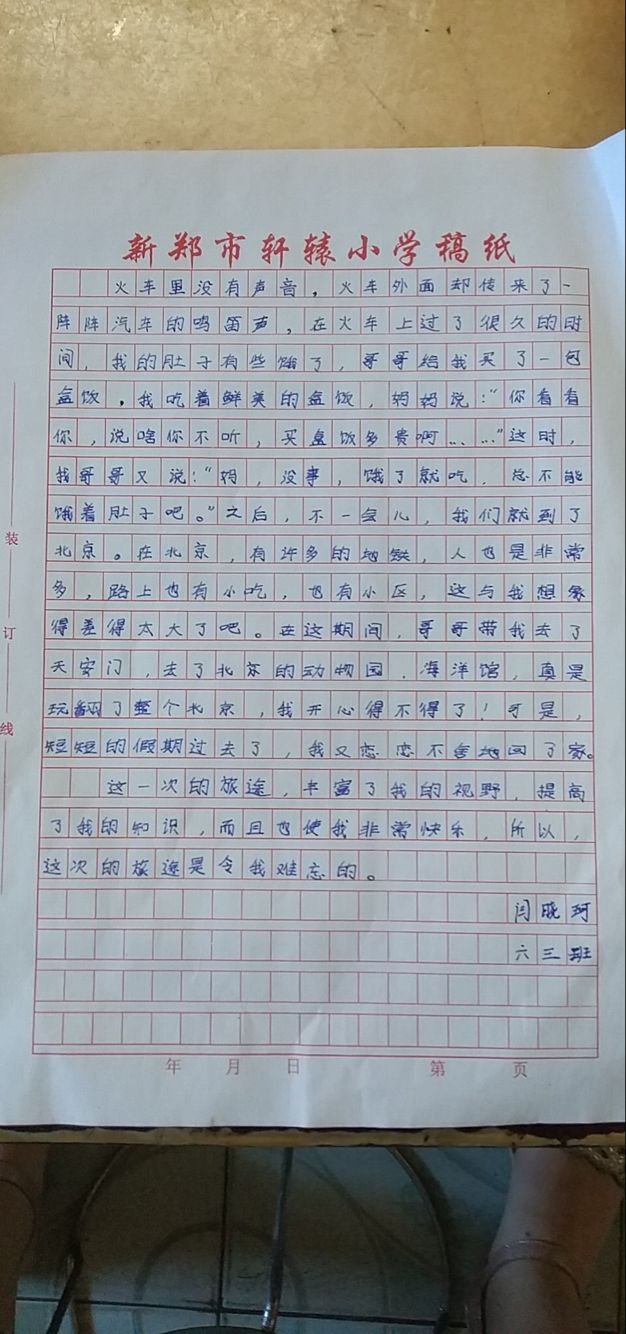 新郑市轩辕小学稿纸
火车里没有声音，火车外面却传来了一
阵阵汽车的鸣笛声，在火车上过了很久的时
间，我的肚子有些饿了，哥哥给我买了一包
盒饭，我吃着鲜美的盒饭，妈妈说：“你看看
你，说啥你不听，买盒饭多贵啊……”这时，
我哥哥又说：“妈，没事，饿了就吃，总不能
饿着肚子吧。”之后，不一会儿，我们就到了
北京。在北京，有许多的地铁，人也是非常
多，路上也有小吃，也有小区，这与我想象
得差得太大了吧。在这期间，哥哥带我去了
天安门，去了北京的动物园，海洋馆，真是
玩翻了整个北京，我开心得不得了！可是，
短短的假期过去了，我又恋恋不舍地回了家。
这一次的旅途，丰富了我的视野，提高
了我的知识，而且也使我非常快乐，所以，
这次的旅途是令我难忘的。
闫晓珂
六三班
年 月 日 第 页
装
订
线